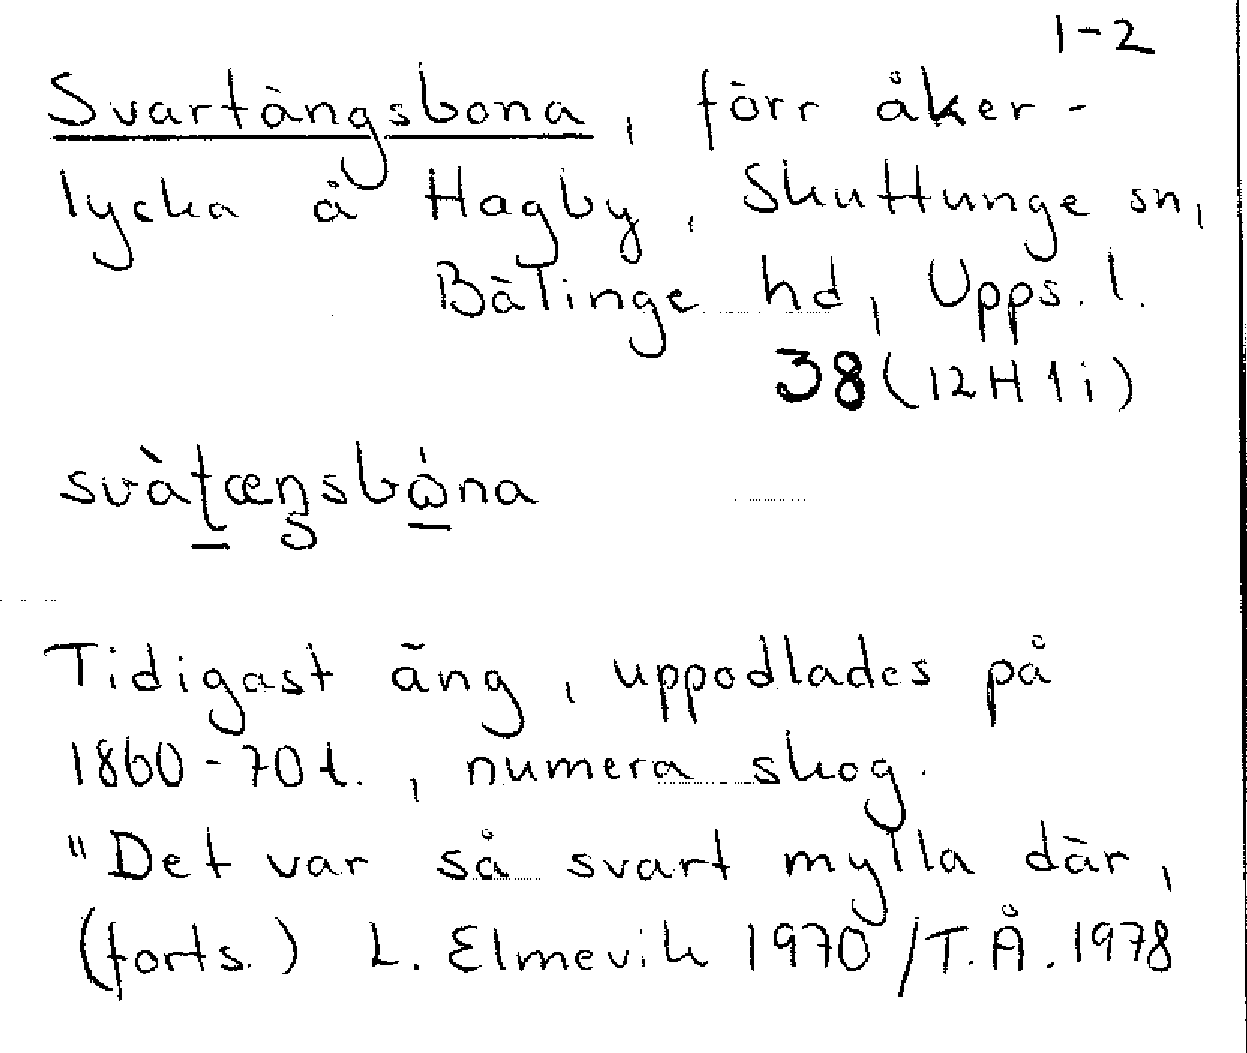 1-2
Svartängsbona, förr åker-
lycka å Hagby, Skuttunge sn,
Bälinge hd, Upps. l.
38 (12H 1i)
svàt̠æŋsbώ̠na
Tidigast äng, uppodlades på
1860-70 t., numera skog.
"Det var så svart mylla där,
(forts.) L. Elmevik 1970/T.Å. 1978